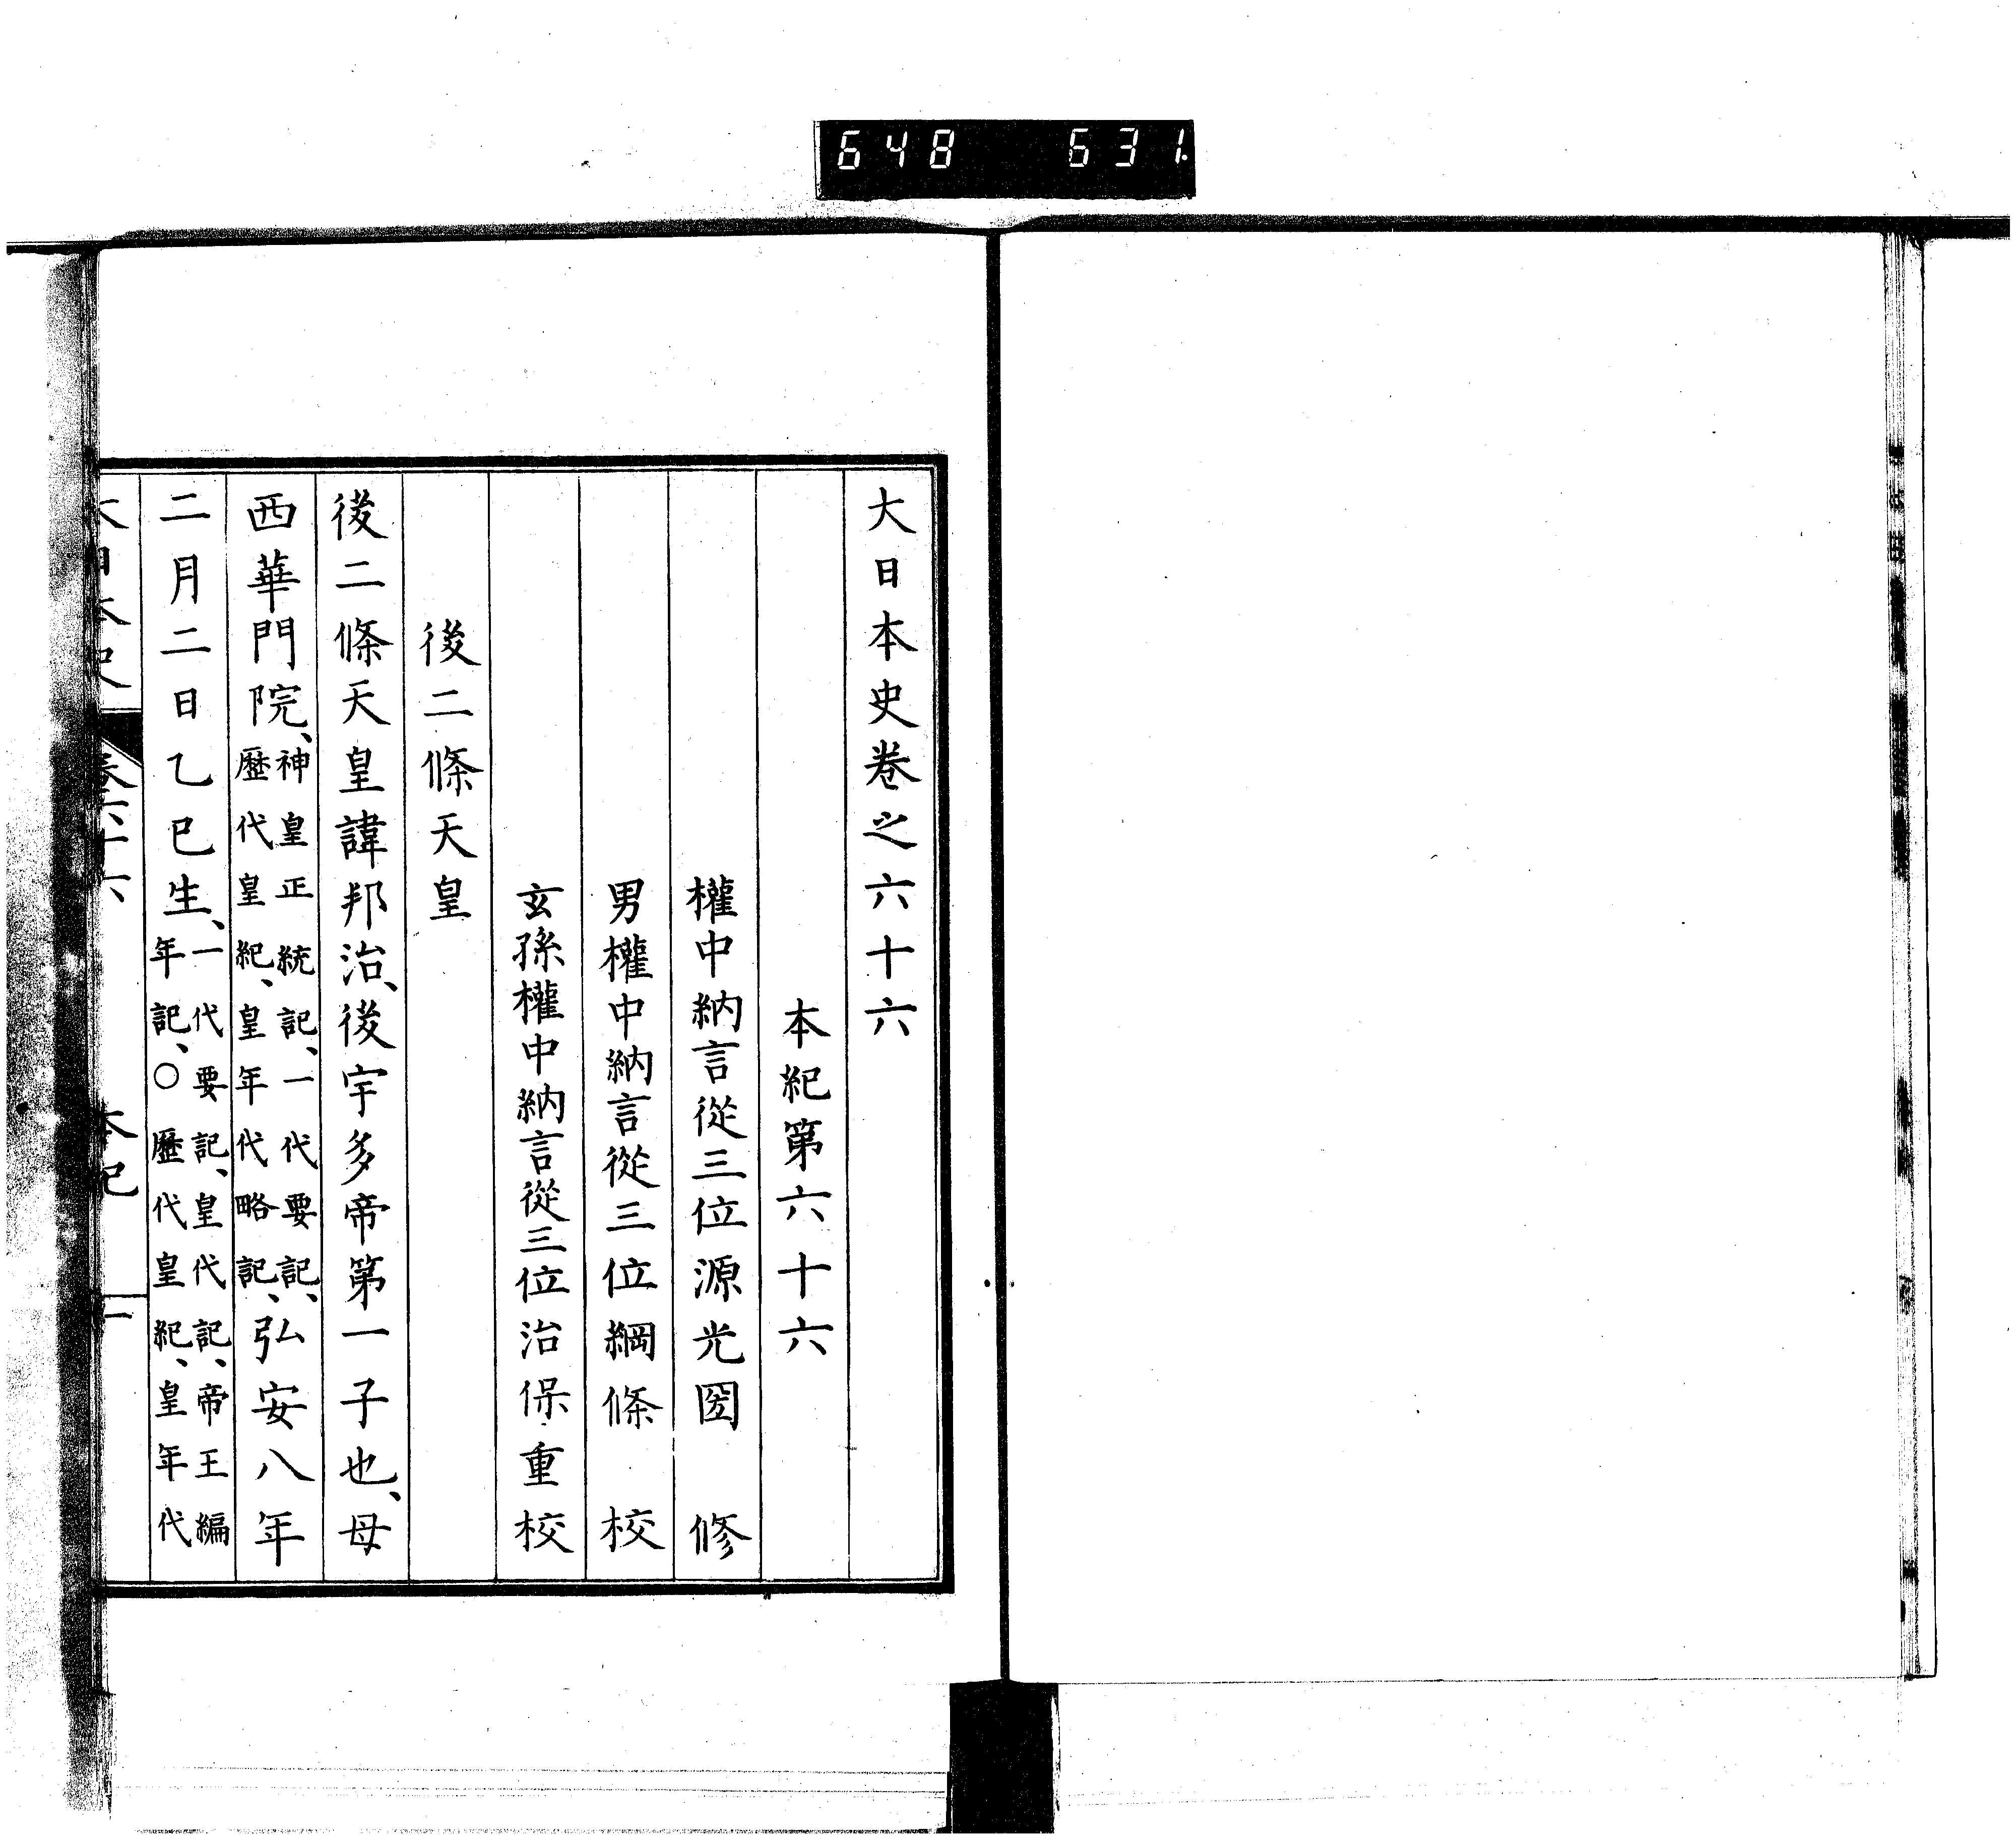 648 631.
大日本史卷之六十六
本紀第六十六
權中納言從三位源光圀 修
男權中納言從三位綱條 校
玄孫權中納言從三位治保重校
後二條天皇
後二條天皇諱邦治、後宇多帝第一子也、母
西華門院、神皇正統記、一代要記、歷代皇紀、皇年代略記、弘安八年
二月二日乙巳生、一代要記、皇代記、帝王編年記、○歷代皇紀、皇年代
大日本史 卷六十六 本紀 一